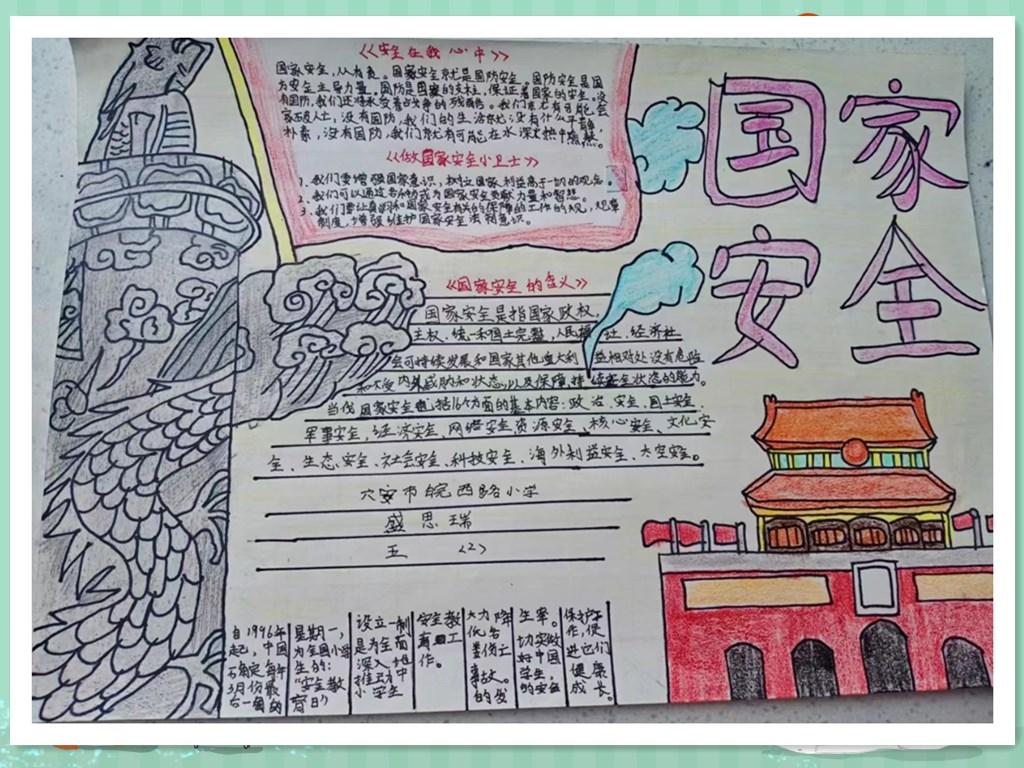 《安全在我心中》
国家安全,人人有责。国家安全就是国防安全。国防安全是国
为安全主导力量。国防是国家的支柱,保证着国家的安全,没
有国防,我们还将承受着战争的残酷。我们
家破人亡,没有国防,我们的生活就没有什么平静,
朴素,没有国防,我们就有可能在水深火热中
《做国家安全小卫士》
1、我们要增强国家意识,树立国家利益高于一切的观念。
2、我们可以通过各种方式为国家安全贡献力量和智慧。
3、我们要认真学习和国家安全有关的保障的工作的法规,规章
制度,增强维护国家安全
国家
安全
《国家安全的含义》
国家安全是指国家政权,
主权、统一和国土完整,人民福 社、经济社
会可持续发展和国家其他重大利 益相对处没有危险
和不受内外威胁和状态,以及保障持 续安全状态的能力。
当代国家安全包括16个方面的基本内容:政治、安全、国土安全、
军事安全,经济安全、网络安全、资源安全、核心安全、文化安
全、生态安全、社会安全、科技安全、海外利益安全、太空安全。
六安市皖西路小学
盛思瑞
五 〈2〉
自1996年
起,中国
确定每年
3月份最
后一周的
星期一,
为全国小学
生的:
“安全教
育日”
设立一制
是为全面
深入地
推动中
小学安全
安全教
育工
作。
大力降
低各
类伤亡
事故。
的发
生率。
切实做
好中国
学生,
的安全
保护工
作,使
进它们
健康
成长。